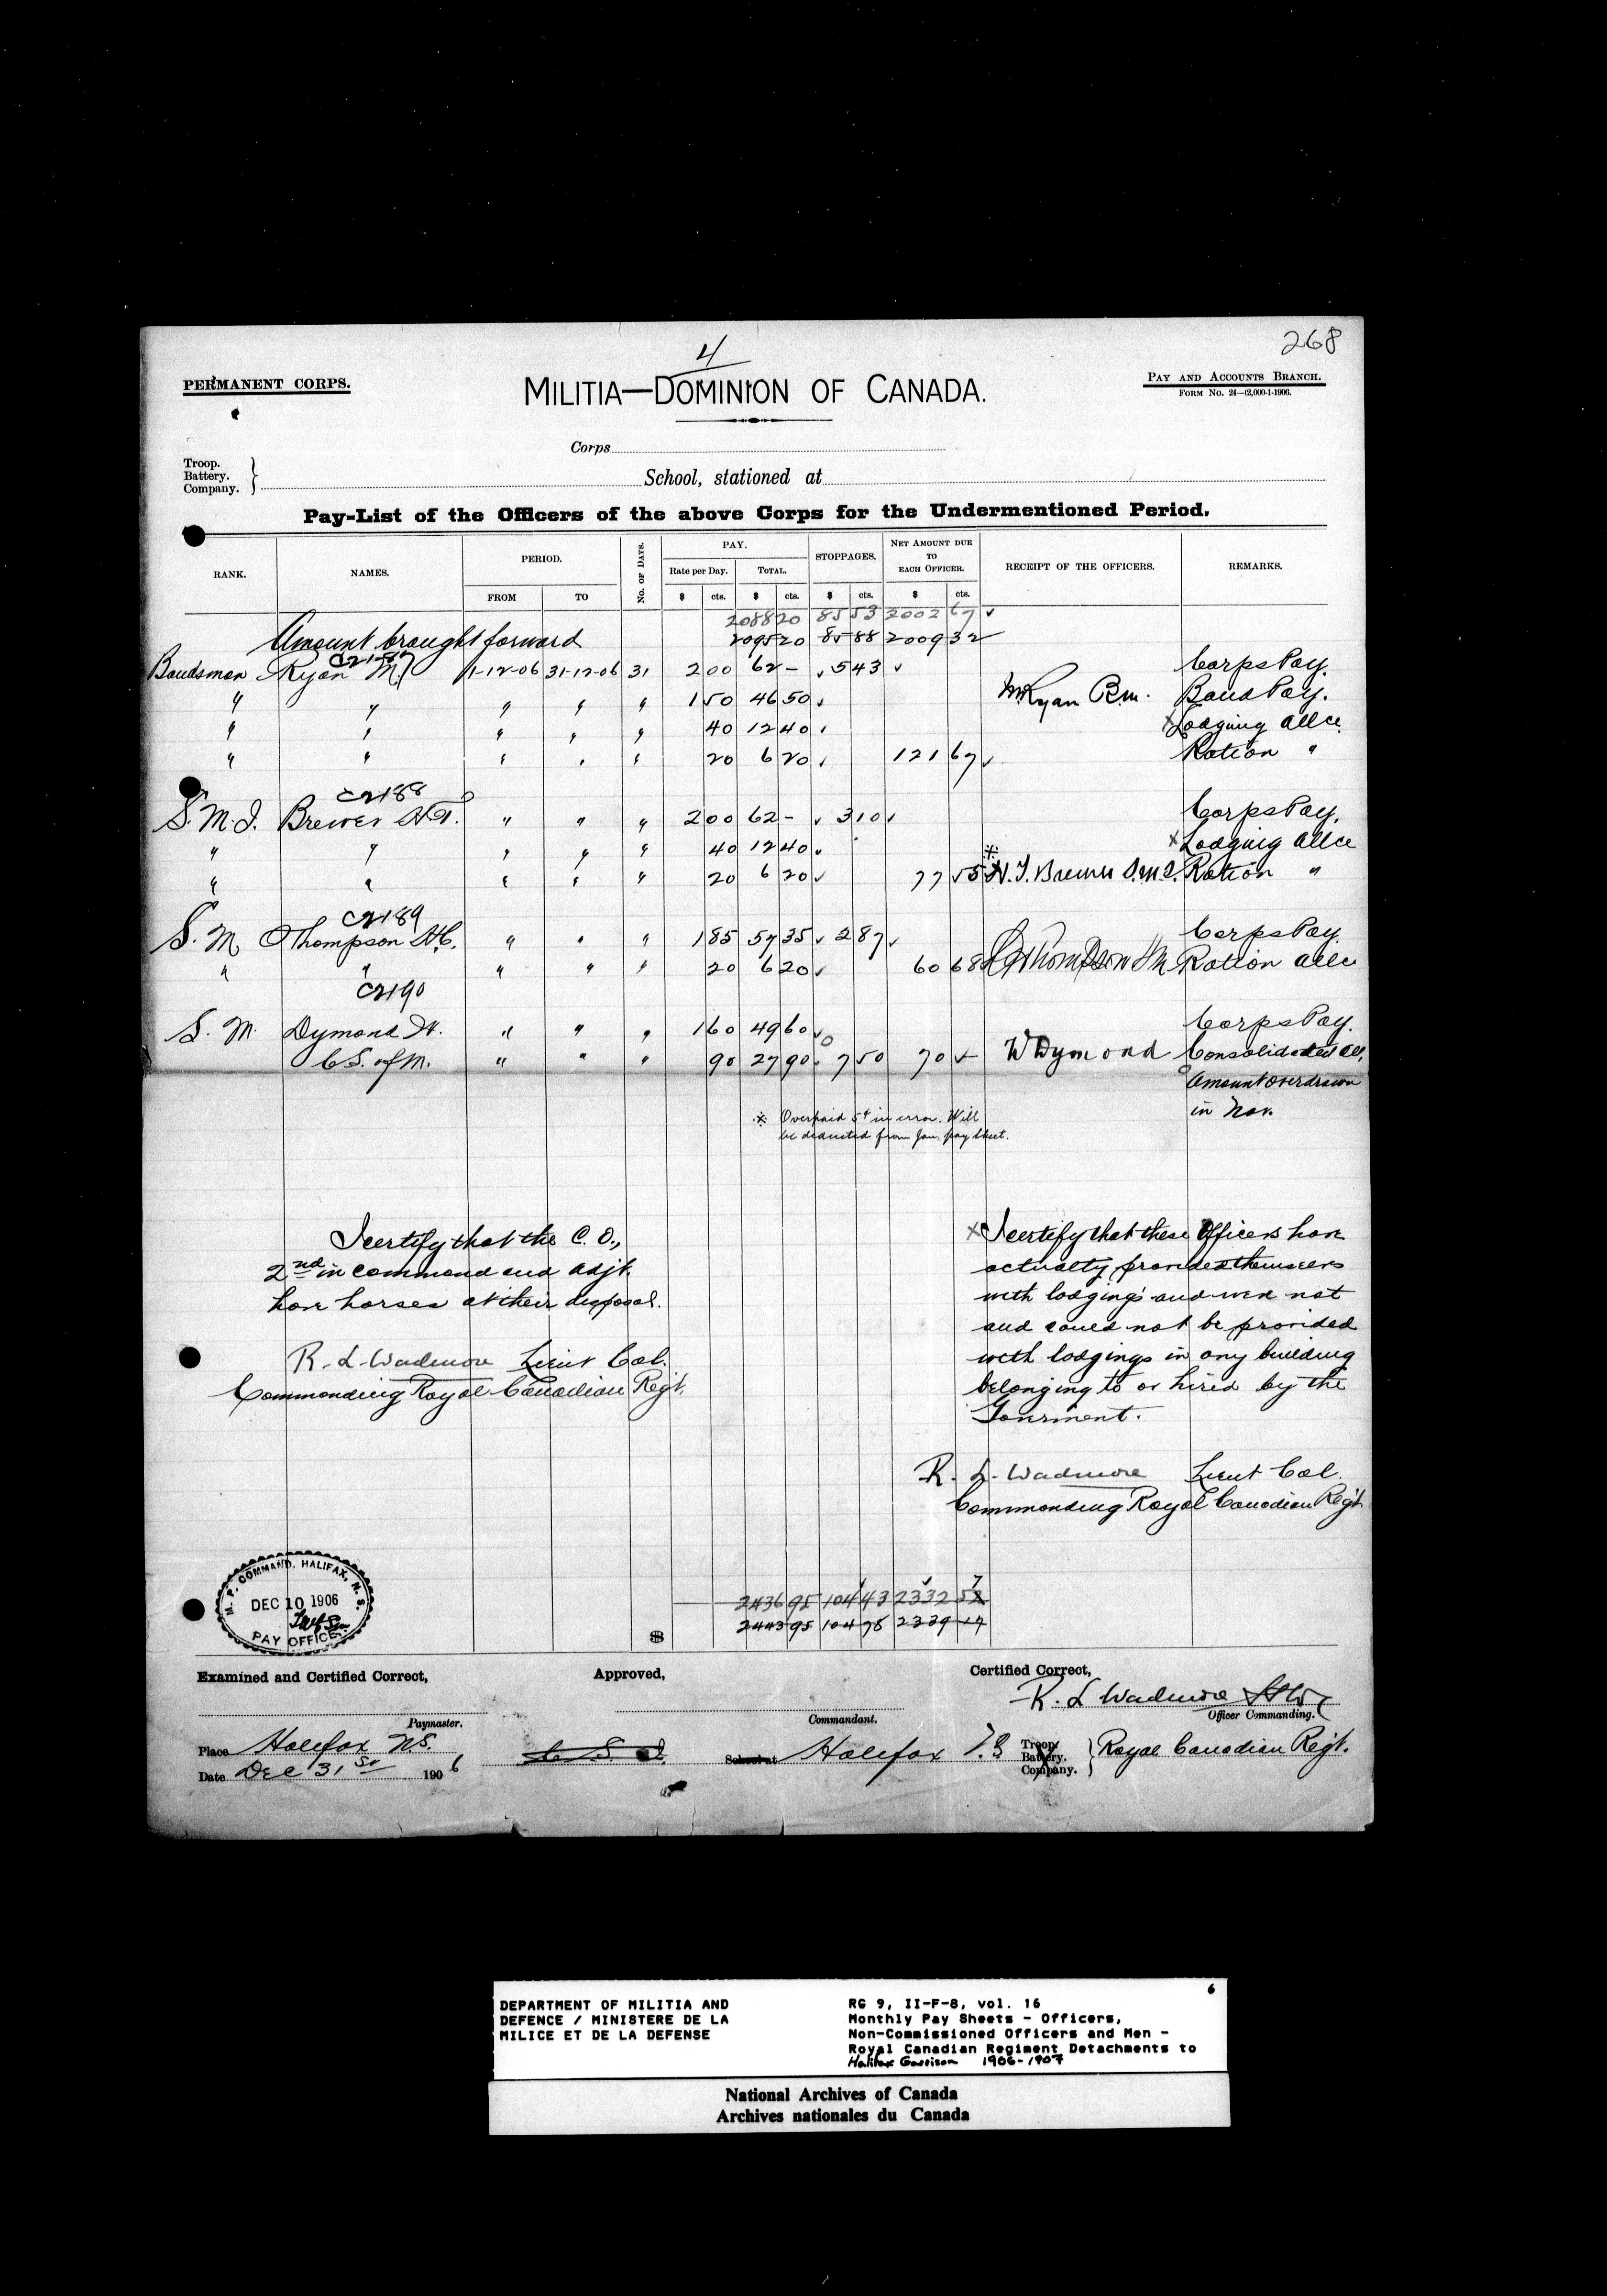 268
4
PERMANENT CORPS.
MILITIA—DOMINION OF CANADA.
PAY AND ACCOUNTS BRANCH.
FORM NO. 24—(2,000-1-1906.
Corps
Troop.
Battery.
Company.
School, stationed at
Pay-List of the Officers of the above Corps for the Undermentioned Period.
RANK. NAMES. PERIOD. No. OF DAYS. PAY. STOPPAGES. NET AMOUNT DUE TO EACH OFFICER. RECEIPT OF THE OFFICERS. REMARKS.
Rate per Day. TOTAL.
FROM TO $ cts. $ cts. $ cts. $ cts.
2088 20 85 53 2002 67
Amount brought forward 2095 20 85 88 2009 32
Bandsman Ryan M 1-12-06 31-12-06 31 2 00 62 - 5 43 Corps Pay.
" " " " " 1 50 46 50 M Ryan B.m. Band Pay.
" " " " " 40 12 40 x Lodging allce
" " " " " 20 6 20 121 67 Ration "
C2188
S.M.I. Brewer H.T. " " " 2 00 62 - 3 10 Corps Pay.
" " " " " 40 12 40 x Lodging allce
" " " " " 20 6 20 77 55 H. T. Brewer S.M.I. Ration "
C2189
S. M. Thompson H.C. " " " 1 85 57 35 2 87 Corps Pay.
" " " " " 20 6 20 60 68 Thompson SM Ration allce
C2190
S. M. Dymond W. " " " 1 60 49 60 Corps Pay.
C.S. of M. " " " 90 27 90 7 50 70 - W Dymond Consolidated all.
Amount overdrawn
in Nov.
※ Overpaid 5¢ in error. Will
be deducted from Jan. pay sheet.
I certify that the C. O.,
2nd in command and adjt.
have horses at their disposal.
R. L. Wadmore Lieut Col.
Commanding Royal Canadian Regt.
x I certify that these Officers have
actually provided themselves
with lodgings and were not
and could not be provided
with lodgings in any building
belonging to or hired by the
Goverment.
R. L. Wadmore Lieut Col.
Commanding Royal Canadian Regt
M. P. COMMAND. HALIFAX, N. S.
DEC 10 1906
PAY OFFICE.
2436 95 104 43 2332 52 7
$ 2443 95 104 78 2339 17
Examined and Certified Correct, Approved, Certified Correct,
R. L Wadmore
Paymaster. Commandant. Officer Commanding.
Place Halifax N.S. School at Halifax Troop. Battery. Company. Royal Canadian Regt.
Date Dec 31st 1906
6
DEPARTMENT OF MILITIA AND
DEFENCE / MINISTERE DE LA
MILICE ET DE LA DEFENSE
RG 9, II-F-8, vol. 16
Monthly Pay Sheets - Officers,
Non-Commissioned Officers and Men -
Royal Canadian Regiment Detachments to
Halifax Garrison 1906-1907
National Archives of Canada
Archives nationales du Canada